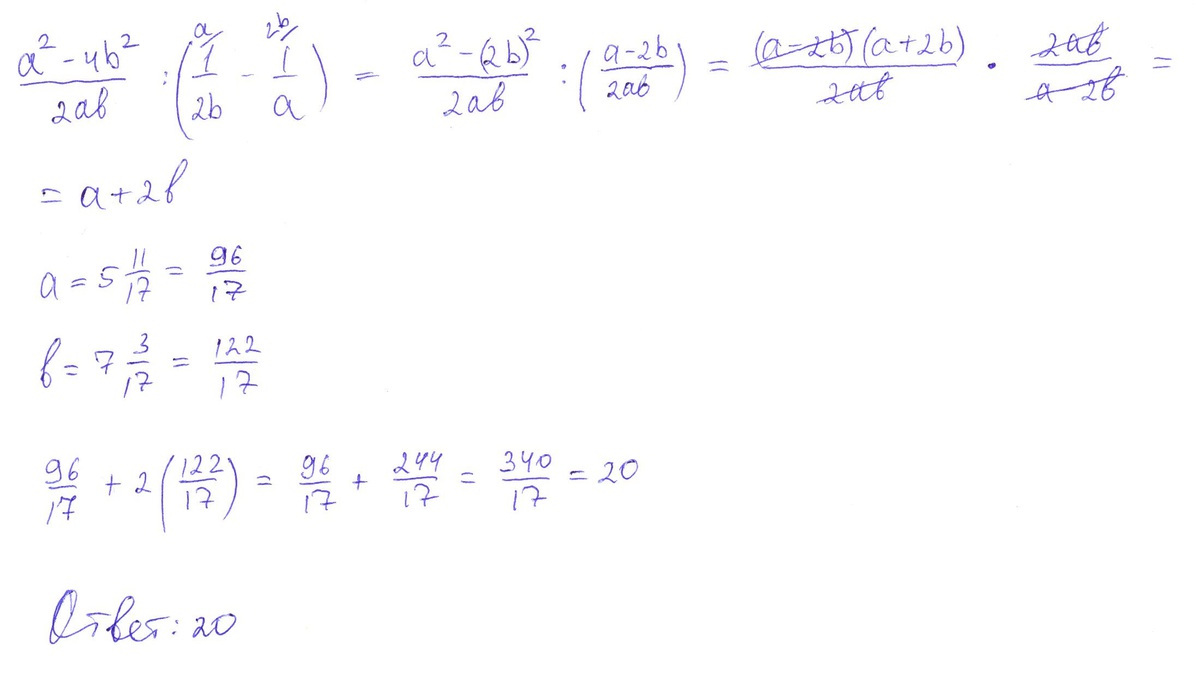 (a² - 4b²)/(2ab) : (1/(2b) - 1/a) = (a² - (2b)²)/(2ab) : ((a-2b)/(2ab)) = ((a-2b)(a+2b))/(2ab) · (2ab)/(a-2b) =
= a + 2b
a = 5 11/17 = 96/17
b = 7 3/17 = 122/17
96/17 + 2(122/17) = 96/17 + 244/17 = 340/17 = 20
Ответ: 20